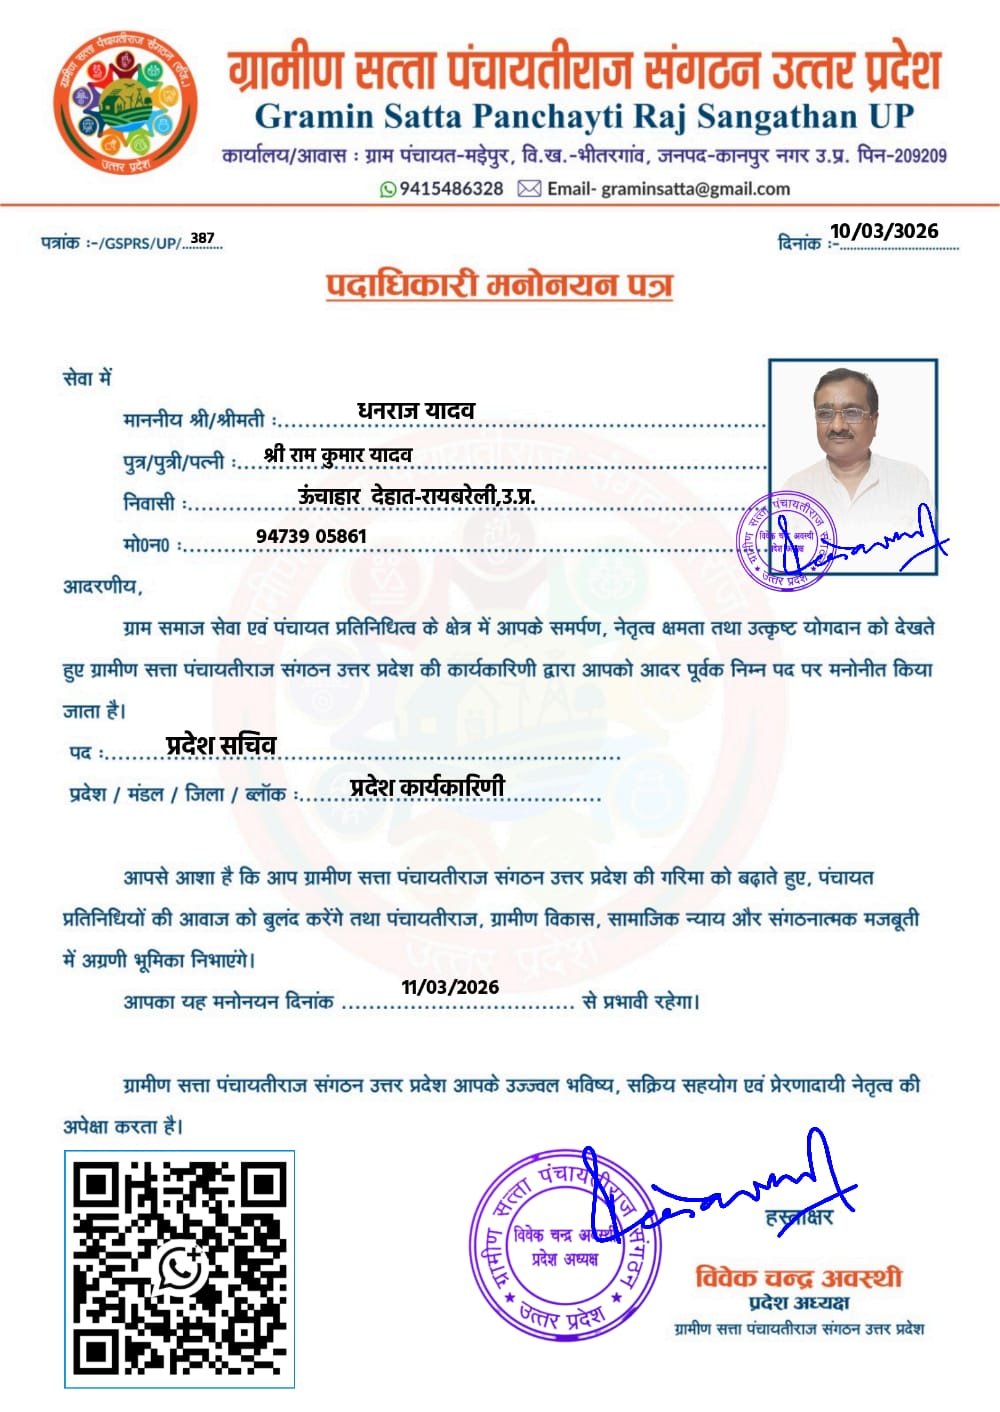 ग्रामीण सत्ता पंचायतीराज संगठन (रजि.)
उत्तर प्रदेश
ग्रामीण सत्ता पंचायतीराज संगठन उत्तर प्रदेश
Gramin Satta Panchayti Raj Sangathan UP
कार्यालय/आवास : ग्राम पंचायत-मड़ेपुर, वि.ख.-भीतरगांव, जनपद-कानपुर नगर उ.प्र. पिन-209209
9415486328 Email- graminsatta@gmail.com
पत्रांक :-/GSPRS/UP/..387......
दिनांक :-10/03/3026
पदाधिकारी मनोनयन पत्र
सेवा में
माननीय श्री/श्रीमती : धनराज यादव
पुत्र/पुत्री/पत्नी : श्री राम कुमार यादव
निवासी : ऊंचाहार देहात-रायबरेली,उ.प्र.
मो0न0 : 94739 05861
ग्रामीण सत्ता पंचायतीराज संगठन
विवेक चन्द्र अवस्थी
प्रदेश अध्यक्ष
उत्तर प्रदेश
आदरणीय,
ग्राम समाज सेवा एवं पंचायत प्रतिनिधित्व के क्षेत्र में आपके समर्पण, नेतृत्व क्षमता तथा उत्कृष्ट योगदान को देखते
हुए ग्रामीण सत्ता पंचायतीराज संगठन उत्तर प्रदेश की कार्यकारिणी द्वारा आपको आदर पूर्वक निम्न पद पर मनोनीत किया
जाता है।
पद : प्रदेश सचिव
प्रदेश / मंडल / जिला / ब्लॉक : प्रदेश कार्यकारिणी
आपसे आशा है कि आप ग्रामीण सत्ता पंचायतीराज संगठन उत्तर प्रदेश की गरिमा को बढ़ाते हुए, पंचायत
प्रतिनिधियों की आवाज को बुलंद करेंगे तथा पंचायतीराज, ग्रामीण विकास, सामाजिक न्याय और संगठनात्मक मजबूती
में अग्रणी भूमिका निभाएंगे।
आपका यह मनोनयन दिनांक 11/03/2026 से प्रभावी रहेगा।
ग्रामीण सत्ता पंचायतीराज संगठन उत्तर प्रदेश आपके उज्ज्वल भविष्य, सक्रिय सहयोग एवं प्रेरणादायी नेतृत्व की
अपेक्षा करता है।
ग्रामीण सत्ता पंचायतीराज संगठन
विवेक चन्द्र अवस्थी
प्रदेश अध्यक्ष
उत्तर प्रदेश
हस्ताक्षर
विवेक चन्द्र अवस्थी
प्रदेश अध्यक्ष
ग्रामीण सत्ता पंचायतीराज संगठन उत्तर प्रदेश